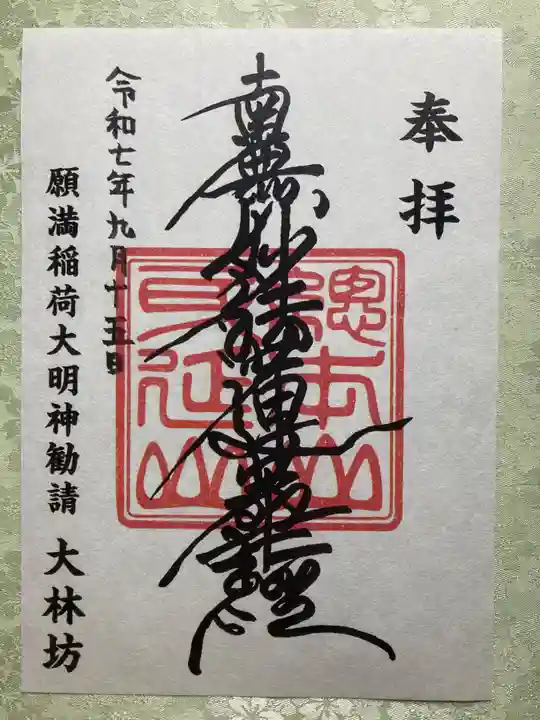 奉拝
南無妙法蓮華経
總本山
身延山
令和七年九月十五日
願満稲荷大明神勧請 大林坊